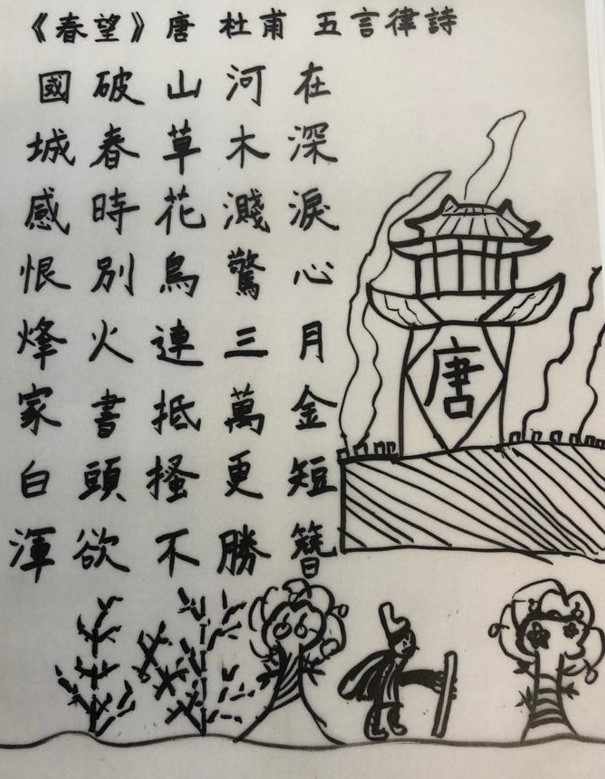 《春望》唐 杜甫 五言律詩
國破山河在
城春草木深
感時花濺淚
恨別鳥驚心
烽火連三月
家書抵萬金
白頭搔更短
渾欲不勝簪
唐